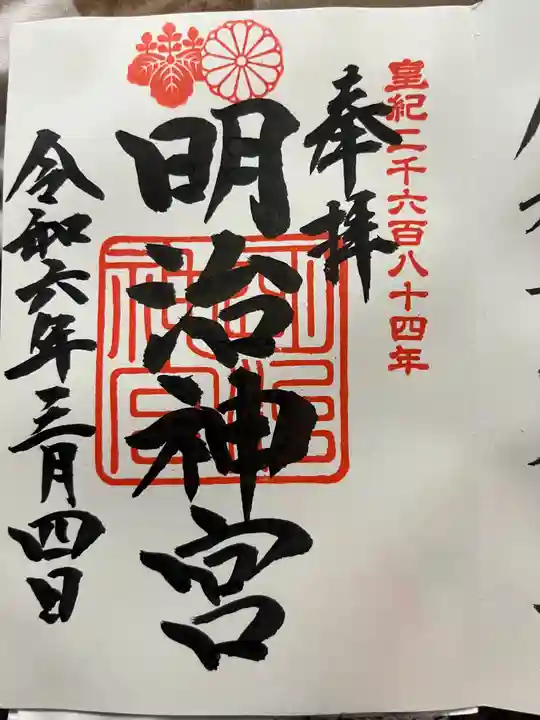 皇紀二千六百八十四年
奉拝
明治神宮
令和六年三月四日